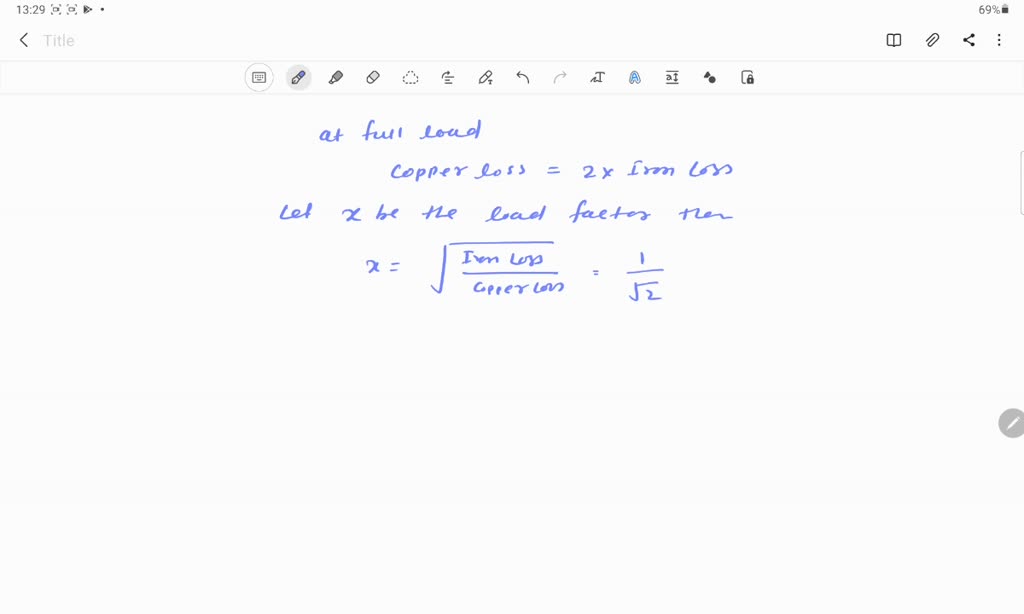 13:29
69%
Title
at full load
Copper loss = 2x Iron Loss
Let x be the load factor then
x = √(Iron Loss / Copper Loss) = 1/√2